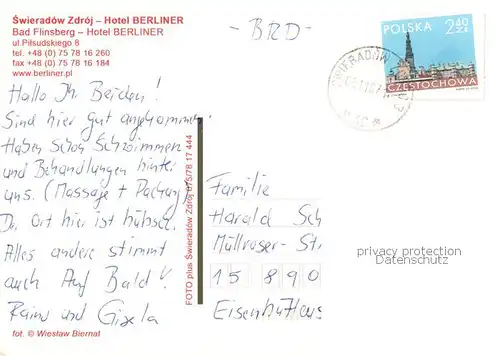 Świeradów Zdrój – Hotel BERLINER
Bad Flinsberg – Hotel BERLINER
ul.Piłsudskiego 8
tel. +48 (0) 75 78 16 260
fax +48 (0) 75 78 16 184
www.berliner.pl
- BRD -
POLSKA 2,40 ZŁ
CZĘSTOCHOWA
ŚWIERADÓW
Hallo Ihr Beiden!
Sind hier gut angekommen.
Haben schon Schwimmen
und Behandlungen hinter
uns. (Massage + Packung)
Der Ort hier ist hübsch.
Alles andere stimmt
auch. Auf Bald!
Rainer und Gisela
fot. © Wiesław Biernat
FOTO plus Świeradów Zdrój 075/78 17 444
Familie
Harald Sch
Müllroser-Str
15890
Eisenhüttens
privacy protection
Datenschutz